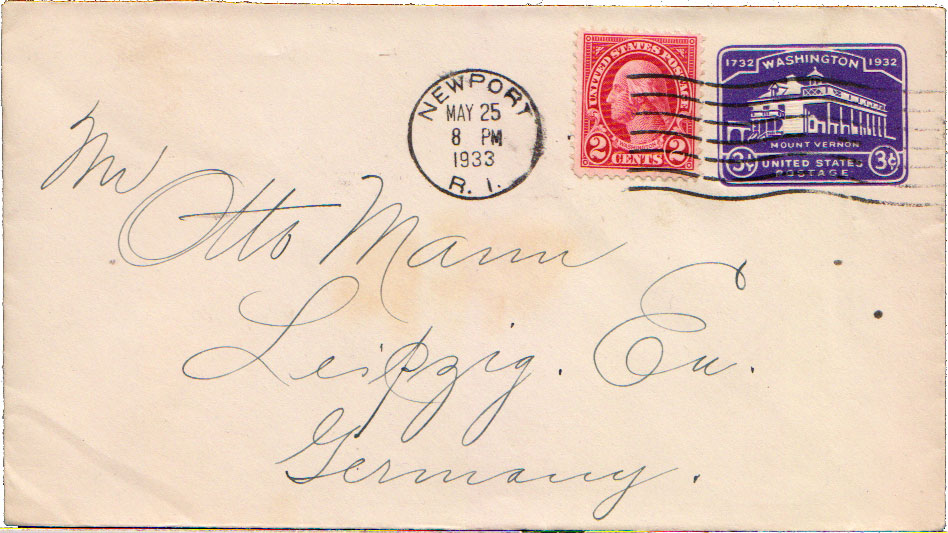 NEWPORT
MAY 25
8 PM
1933
R. I.
UNITED STATES POSTAGE
2 CENTS 2
1732 WASHINGTON 1932
MOUNT VERNON
3¢ UNITED STATES 3¢
POSTAGE
Mr
Otto Mann
Leipzig. Eu.
Germany.